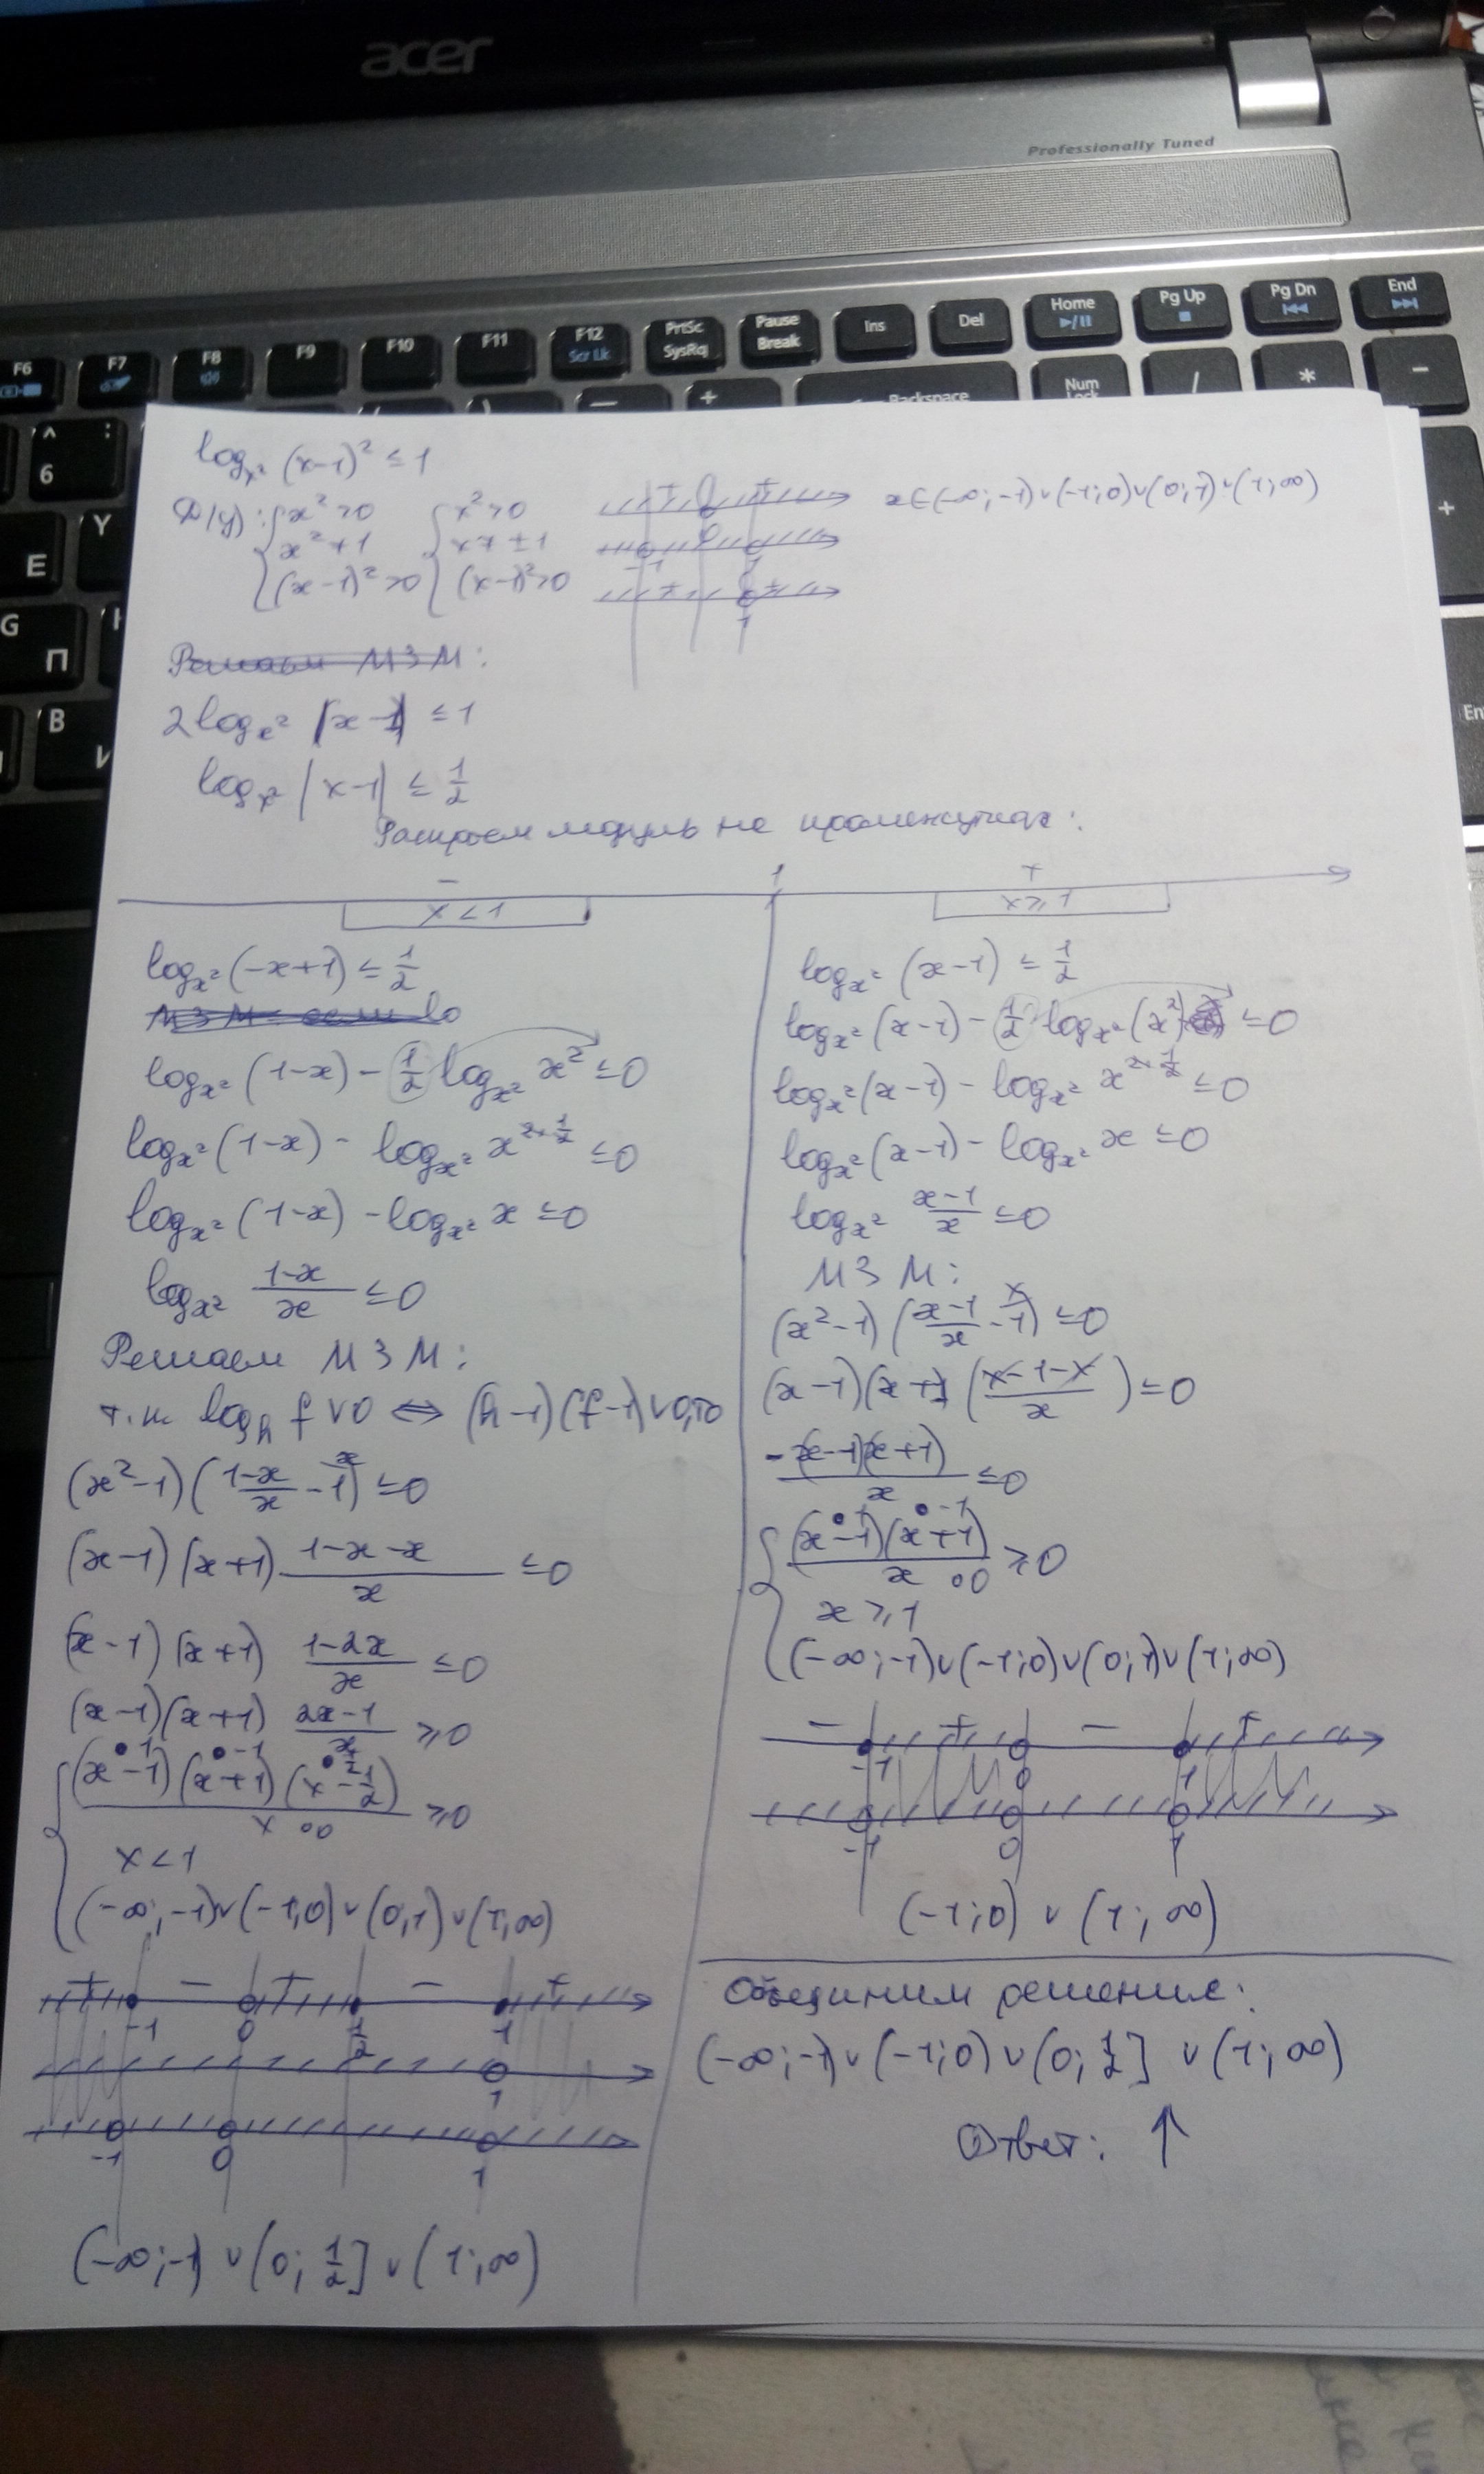 acer
Professionally Tuned
F6 F7 F8 F9 F10 F11 F12 Scr Lk PrtSc SysRq Pause Break Ins Del Home Pg Up Pg Dn End
^ : 6 ( ) — + Backspace Num Lock / * -
Y E +
G П
В И En
log_{x²} (x-1)² ≤ 1
Д(у): { x² > 0 { x² > 0
x² ≠ 1 x ≠ ±1
(x-1)² > 0 (x-1)² > 0
x ∈ (-∞; -1) ∪ (-1; 0) ∪ (0; 1) ∪ (1; ∞)
+ +
-1 1
+ +
1
Решаем МЗМ:
2 log_{x²} |x-1| ≤ 1
log_{x²} |x-1| ≤ 1/2
Раскроем модуль на промежутках:
- 1 +
x < 1 x ≥ 1
log_{x²} (-x+1) ≤ 1/2
log_{x²} (1-x) - 1/2 log_{x²} x² ≤ 0
log_{x²} (1-x) - log_{x²} x^{2·1/2} ≤ 0
log_{x²} (1-x) - log_{x²} x ≤ 0
log_{x²} (1-x)/x ≤ 0
Решаем МЗМ:
т.к log_h f ∨ 0 ⇔ (h-1)(f-1) ∨ 0, то
(x²-1)((1-x)/x - 1^{x}) ≤ 0
(x-1)(x+1) (1-x-x)/x ≤ 0
(x-1)(x+1) (1-2x)/x ≤ 0
(x-1)(x+1) (2x-1)/x ≥ 0
{ (x-1)(x+1)(x-1/2)/x ≥ 0
x < 1
(-∞; -1) ∪ (-1; 0) ∪ (0; 1) ∪ (1; ∞)
+ - + - +
-1 0 1/2 1
1
-1 0 1
(-∞; -1) ∪ (0; 1/2] ∪ (1; ∞)
log_{x²} (x-1) ≤ 1/2
log_{x²} (x-1) - 1/2 log_{x²} (x²) ≤ 0
log_{x²} (x-1) - log_{x²} x^{2·1/2} ≤ 0
log_{x²} (x-1) - log_{x²} x ≤ 0
log_{x²} (x-1)/x ≤ 0
МЗМ:
(x²-1)((x-1)/x - 1^{x}) ≤ 0
(x-1)(x+1)((x-1-x)/x) ≤ 0
-(x-1)(x+1)/x ≤ 0
{ (x-1)(x+1)/x ≥ 0
x ≥ 1
(-∞; -1) ∪ (-1; 0) ∪ (0; 1) ∪ (1; ∞)
- + - +
-1 0 1
-1 0 1
(-1; 0) ∪ (1; ∞)
Объединим решение:
(-∞; -1) ∪ (-1; 0) ∪ (0; 1/2] ∪ (1; ∞)
Ответ: ↑